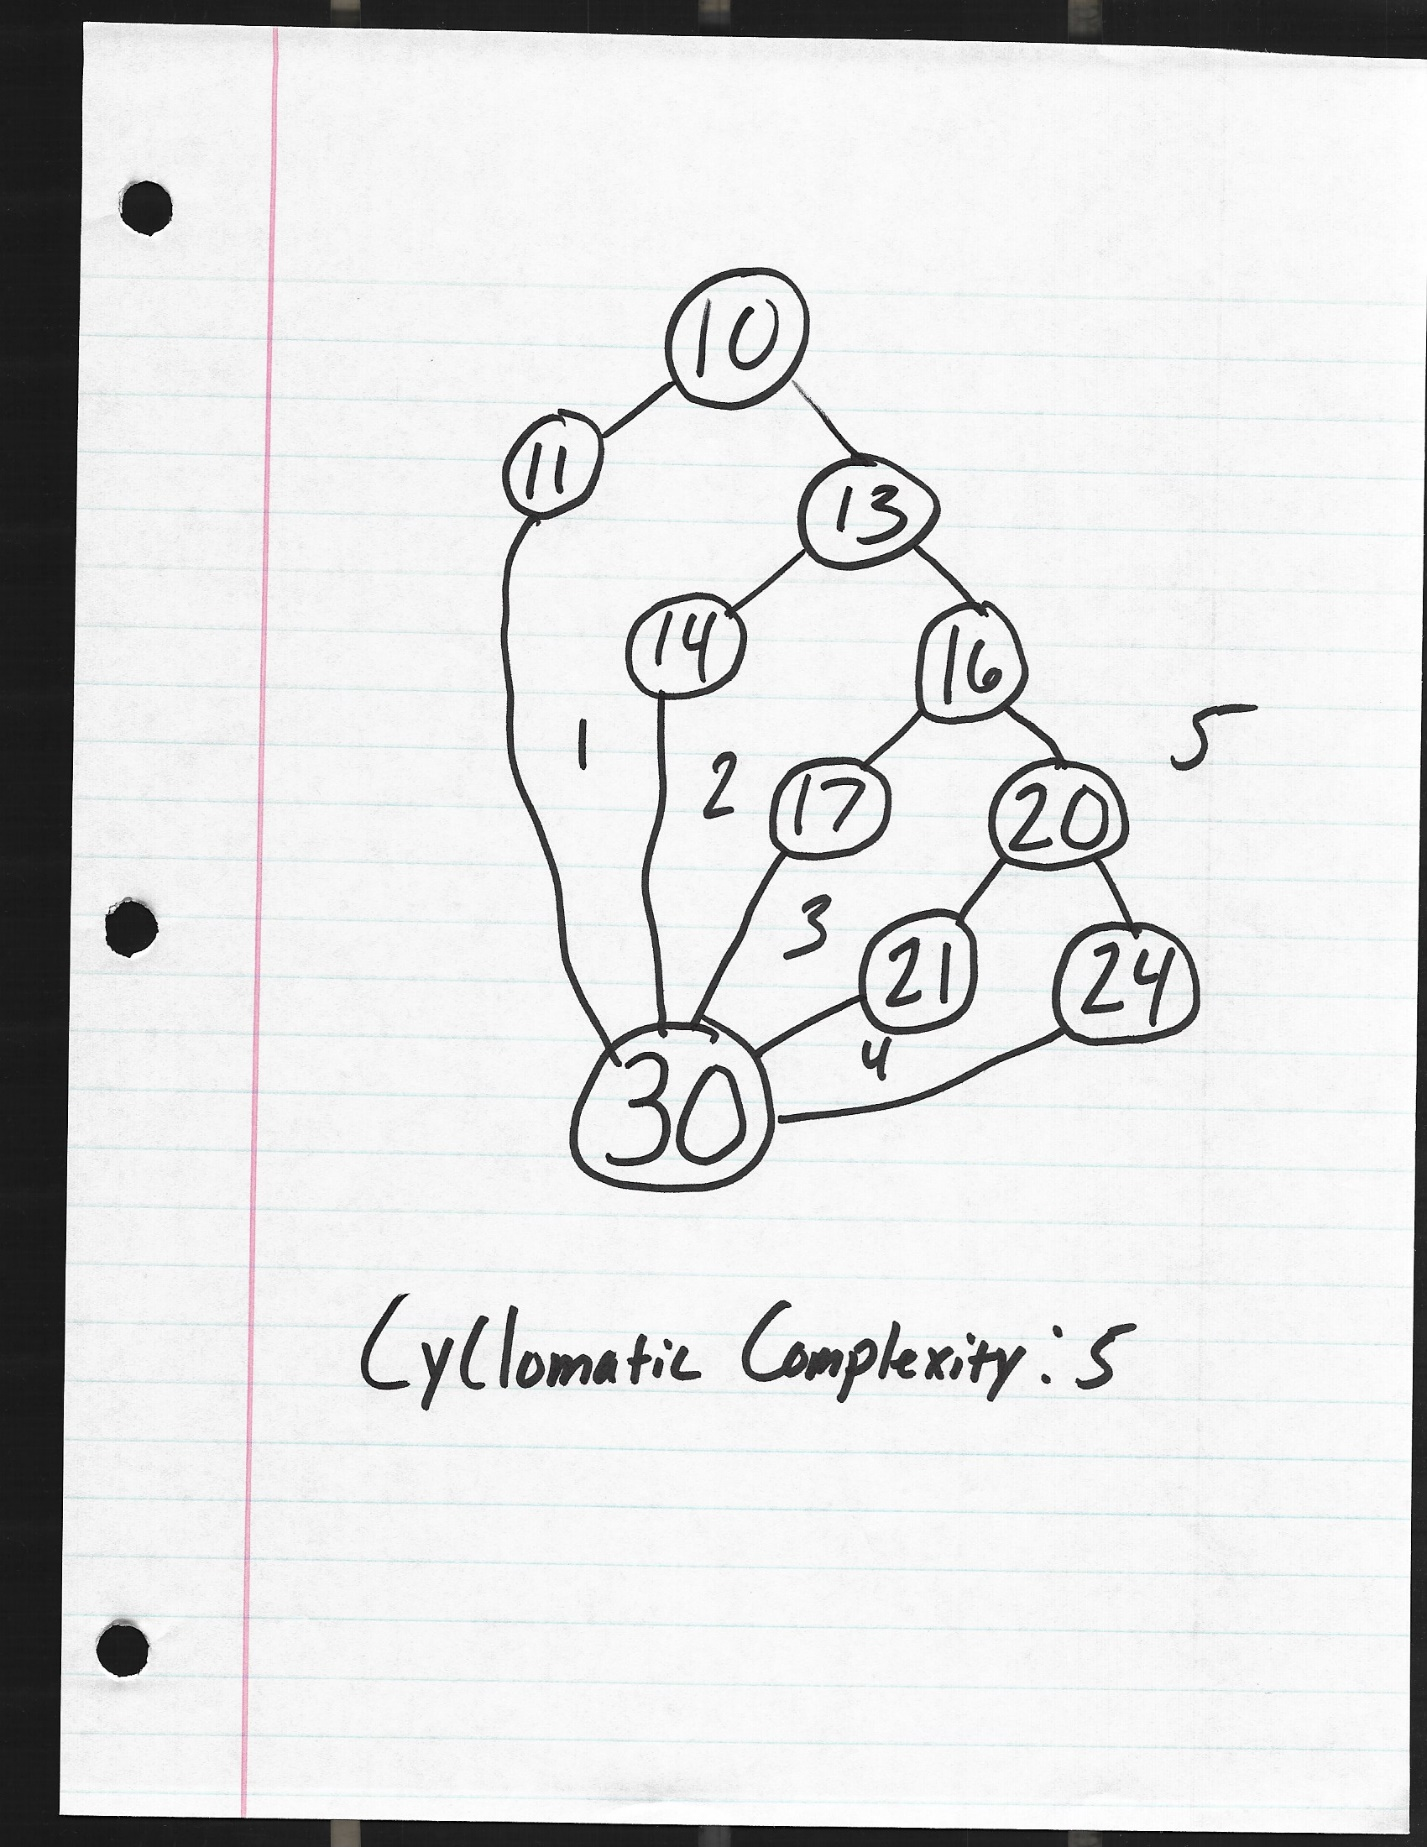 10
11
13
14
16
1
2
17
20
5
3
21
24
4
30
Cyclomatic Complexity: 5